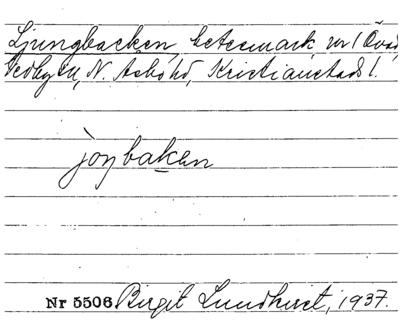 Ljungbacken, betesmark nr 1 Övad,
Vedby sn, N. Åsbo hd, Kristianstads l.
joŋbaken
Nr 5506 Birgit Lundkvist, 1937.